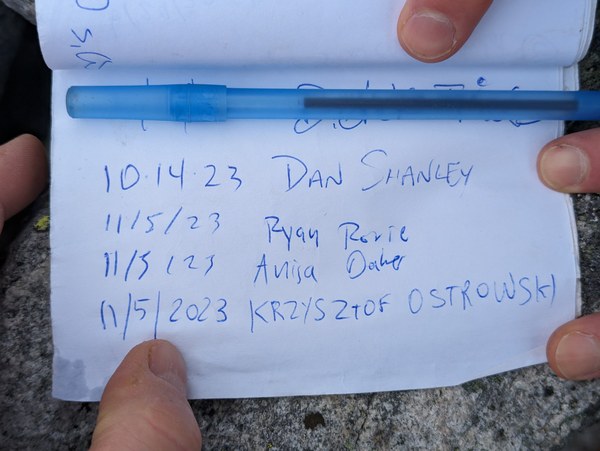 10.14.23 DAN SHANLEY
11/5/23 Ryan
11/5/23 Anisa
11/5/2023 KRZYSZTOF OSTROWSKI